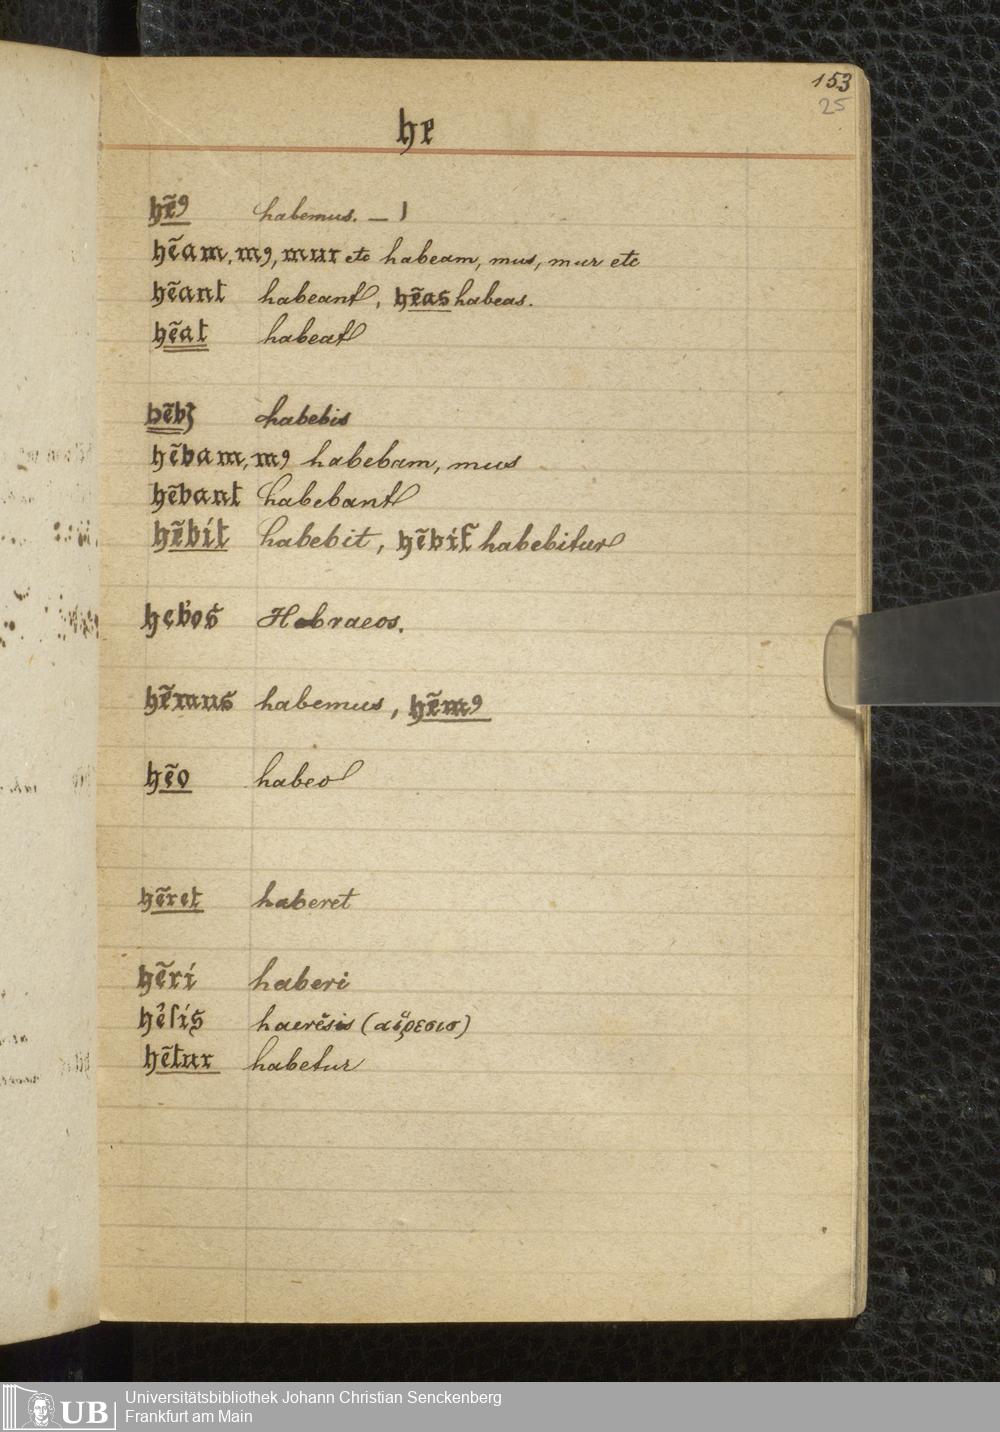 153
25
he
hẽꝯ habemus. — 1
hẽam, mꝯ, mur etc habeam, mus, mur etc
hẽant habeant, hẽas habeas.
hẽat habeat
hẽbꝫ habebis
hẽbam, mꝯ habebam, mus
hẽbant habebant
hẽbit habebit, hẽbit̃ habebitur
heb'os Hebraeos.
hẽmus habemus, hẽmꝯ
hẽo habeo
hẽret haberet
hẽri haberi
he'sis haerĕsis (αἵρεσισ)
hẽtur habetur
UB
Universitätsbibliothek Johann Christian Senckenberg
Frankfurt am Main